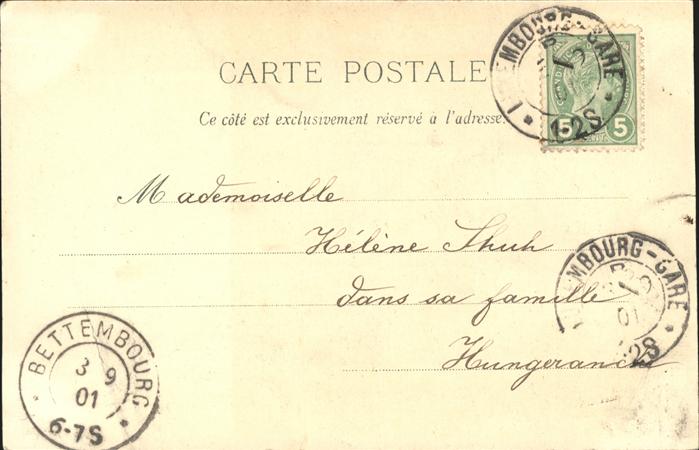 CARTE POSTALE
Ce côté est exclusivement réservé à l'adresse.
LUXEMBOURG-GARE
1-2S
5 5
Mademoiselle
Hélène Schuh
dans sa famille
LUXEMBOURG-GARE
01
BETTEMBOURG
3 9
01
6-7S